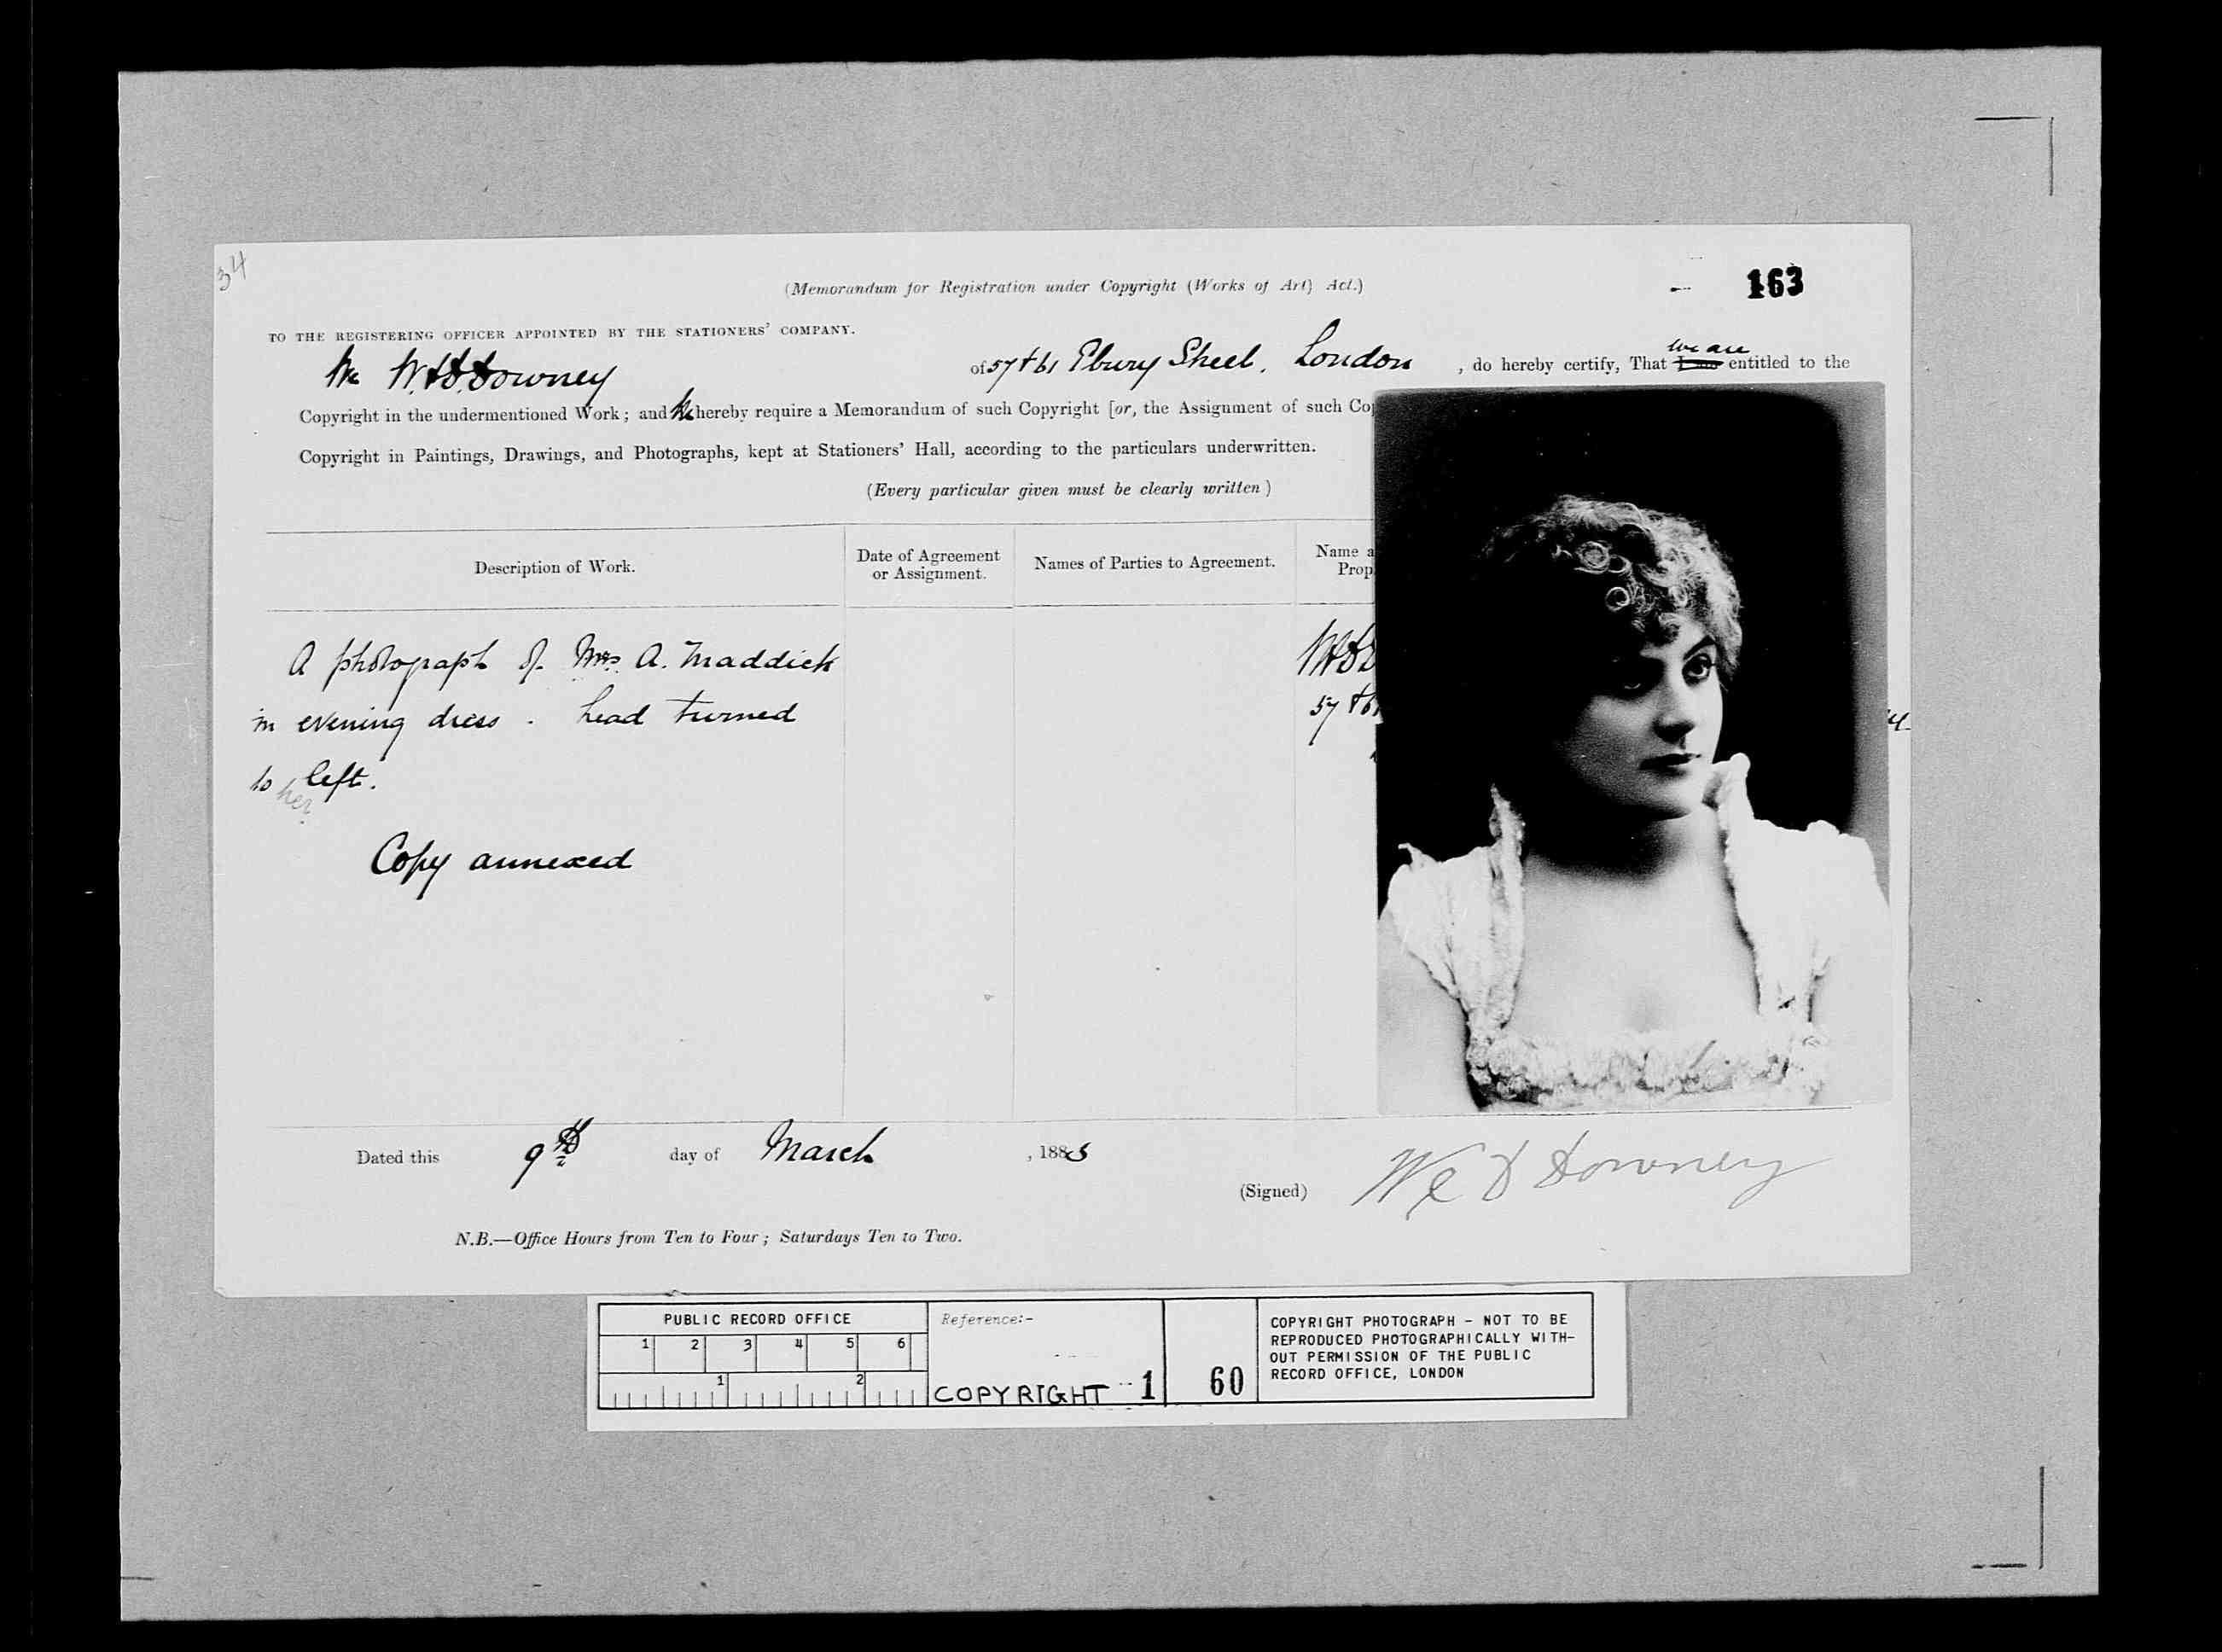 34
(Memorandum for Registration under Copyright (Works of Art) Act.)
163
TO THE REGISTERING OFFICER APPOINTED BY THE STATIONERS' COMPANY.
We W. & D. Downey of 57 & 61 Ebury Street, London, do hereby certify, That we are entitled to the
Copyright in the undermentioned Work; and We hereby require a Memorandum of such Copyright [or, the Assignment of such Cop
Copyright in Paintings, Drawings, and Photographs, kept at Stationers' Hall, according to the particulars underwritten.
(Every particular given must be clearly written)
Description of Work.
Date of Agreement
or Assignment.
Names of Parties to Agreement.
Name a
Prop
A photograph of Mrs A. Maddick
in evening dress. head turned
to her left.
Copy annexed
W & D
57 & 61
Dated this 9th day of March, 1885
(Signed) W & D Downey
N.B.—Office Hours from Ten to Four; Saturdays Ten to Two.
PUBLIC RECORD OFFICE
1 2 3 4 5 6
1 2
Reference:-
COPYRIGHT 1 60
COPYRIGHT PHOTOGRAPH - NOT TO BE
REPRODUCED PHOTOGRAPHICALLY WITH-
OUT PERMISSION OF THE PUBLIC
RECORD OFFICE, LONDON